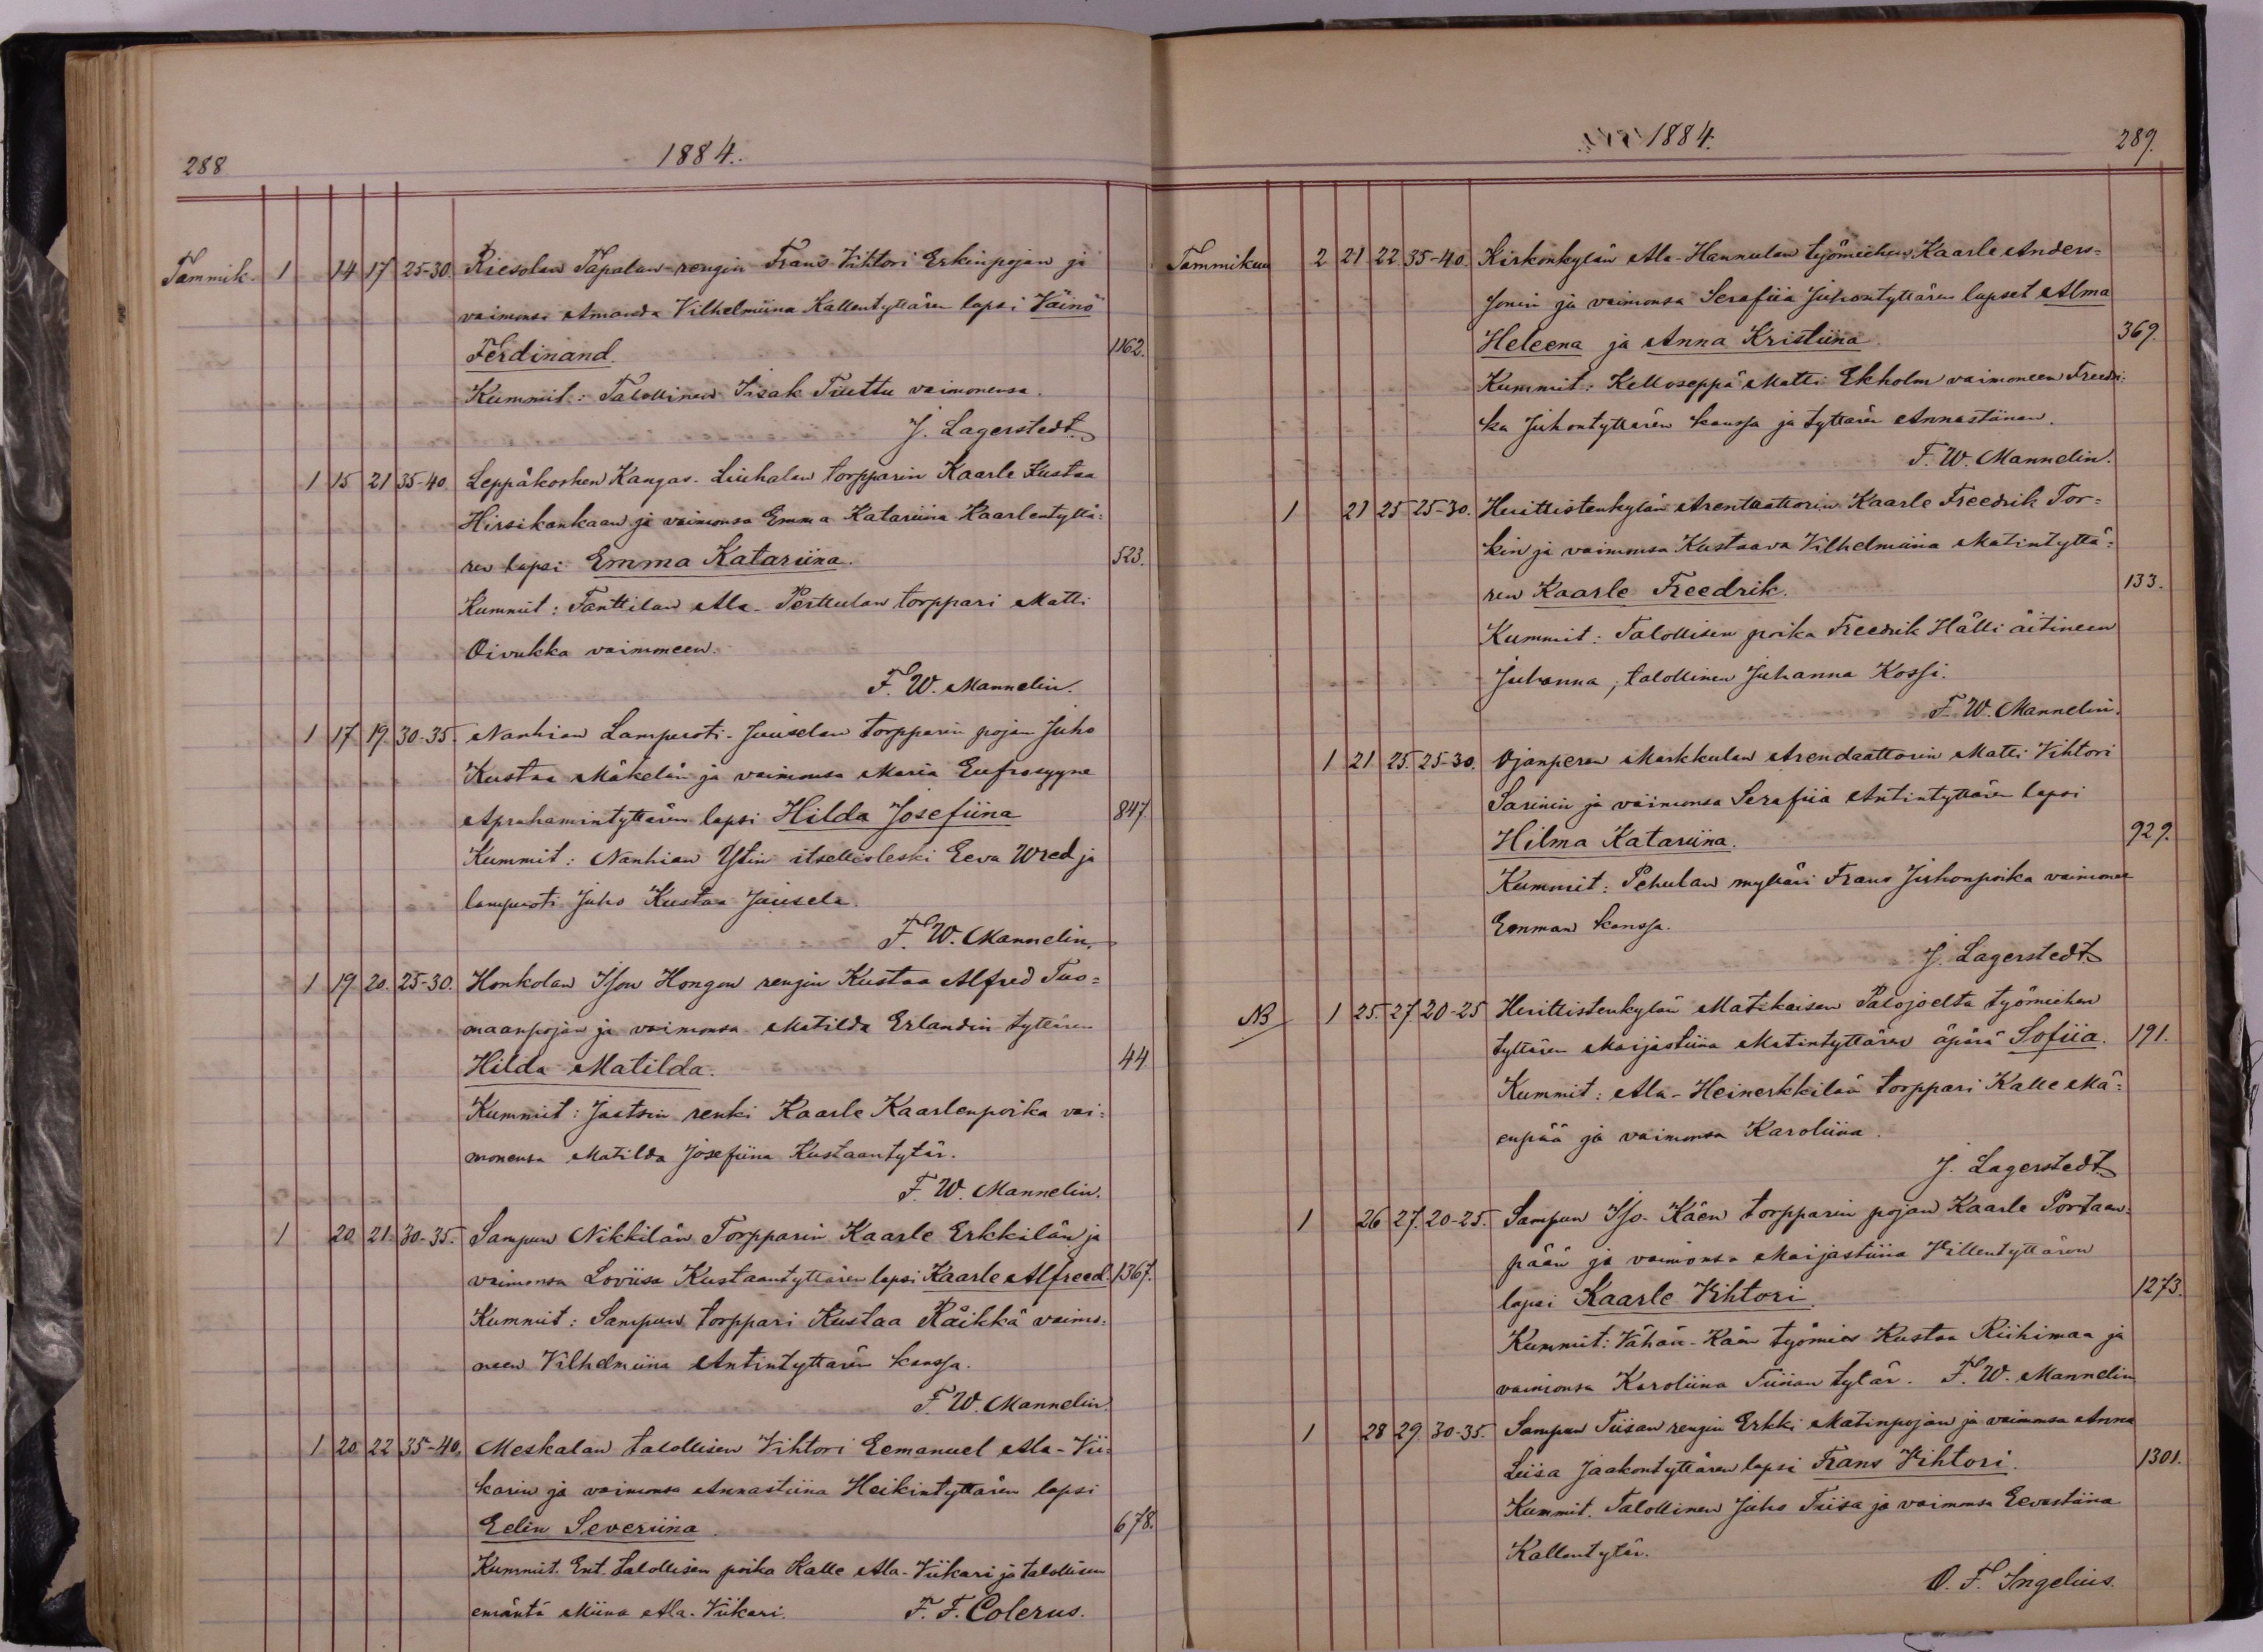 288
1884.
Tammik. 1 14 17 25-30. Riesolan Tapalan rengin Frans Vihtori Erkinpojan ja
vaimonsa Amanda Vilhelmiina Kallentyttären lapsi Väinö
Ferdinand. 1162.
Kummit: Talollinen Iisak Tuittu vaimonensa.
J. Lagerstedt.
1 15 21 35-40 Leppäkosken Kangas-Liuhalan torpparin Kaarle Kustaa
Hirsikankaan ja vaimonsa Emma Katariina Kaarlentyttä=
ren lapsi Emma Katariina. 523.
Kummit: Tanttilan Ala-Perttulan torppari Matti
Oivukka vaimoneen.
F. W. Mannelin.
1 17 19. 30-35. Nanhian Lampuoti-Juuselan torpparin pojan Juho
Kustaa Mäkelän ja vaimonsa Maria Eufrosyyne
Aprahamintyttären lapsi Hilda Josefiina 847
Kummit: Nanhian Ytin itsellisleski Eeva Wred ja
lampuoti Juho Kustaa Juusela.
F. W. Mannelin.
1 19 20. 25-30. Honkolan Ison Hongon rengin Kustaa Alfred Tuo=
maanpojan ja vaimonsa Matilda Erlandin tyttären
Hilda Matilda. 44
Kummit: Jaatsin renki Kaarle Kaarlenpoika vai=
monensa Matilda Josefiina Kustaantytär.
F. W. Mannelin.
1 20 21. 30-35. Sampun Nikkilän Torpparin Kaarle Erkkilän ja
vaimonsa Loviisa Kustaantyttären lapsi Kaarle Alfreed. 1367.
Kummit: Sampun torppari Kustaa Räikkä vaimo=
neen Vilhelmiina Antintyttären kanssa.
F. W. Mannelin.
1 20 22 35-40. Meskalan talollisen Vihtori Eemanuel Ala-Vii=
karin ja vaimonsa Annastiina Heikintyttären lapsi
Eelin Severiina. 678.
Kummit. Ent. talollisen poika Kalle Ala-Viikari ja talollisen
emäntä Miina Ala-Viikari. F. F. Colerus.
1884.
289.
Tammikuu 2 21 22 35-40. Kirkonkylän Ala-Hannulan työmiehen Kaarle Anders=
sonin ja vaimonsa Serafiia Juhontyttären lapset Alma
Heleena ja Anna Kristiina. 369.
Kummit: Kelloseppä Matti Ekholm vaimoneen Freedri=
ka Juhontyttären kanssa ja tyttären Annastiinan.
F. W. Mannelin.
1 21 25 25-30. Huittistenkylän Arentaattorin Kaarle Freedrik Tor=
kin ja vaimonsa Kustaava Vilhelmiina Matintyttä=
ren Kaarle Freedrik. 133.
Kummit: Talollisen poika Freedrik Hälli äitineen
Juhanna, talollinen Juhanna Kossi.
F. W. Mannelin.
1 21 25. 25-30. Ojanperän Markkulan Arendaattorin Matti Vihtori
Sarinin ja vaimonsa Serafiia Antintyttären lapsi
Hilma Katariina. 929.
Kummit: Pehulan mylläri Frans Juhonpoika vaimonsa
Emman kanssa.
J. Lagerstedt.
NB 1 25. 27. 20-25 Huittistenkylän Matikaisen Palojoelta työmiehen
tyttären Maijastiina Matintyttären äpärä Sofiia. 191.
Kummit: Ala-Heinerkkilän torppari Kalle Mä=
enpää ja vaimonsa Karoliina.
J. Lagerstedt.
1 26 27. 20-25. Sampun Iso-Käen torpparin pojan Kaarle Portaan=
pään ja vaimonsa Maijastiina Villentyttären
lapsi Kaarle Vihtori. 1273.
Kummit: Vähän-Käen työmies Kustaa Riihimaa ja
vaimonsa Karoliina Tiinan tytär. F. W. Mannelin
1 28 29. 30-35. Sampun Tiisan rengin Erkki Matinpojan ja vaimonsa Anna
Liisa Jaakontyttären lapsi Frans Vihtori. 1301.
Kummit. Talollinen Juho Tiisa ja vaimonsa Eevastiina
Kallentytär.
O. F. Ingelius.